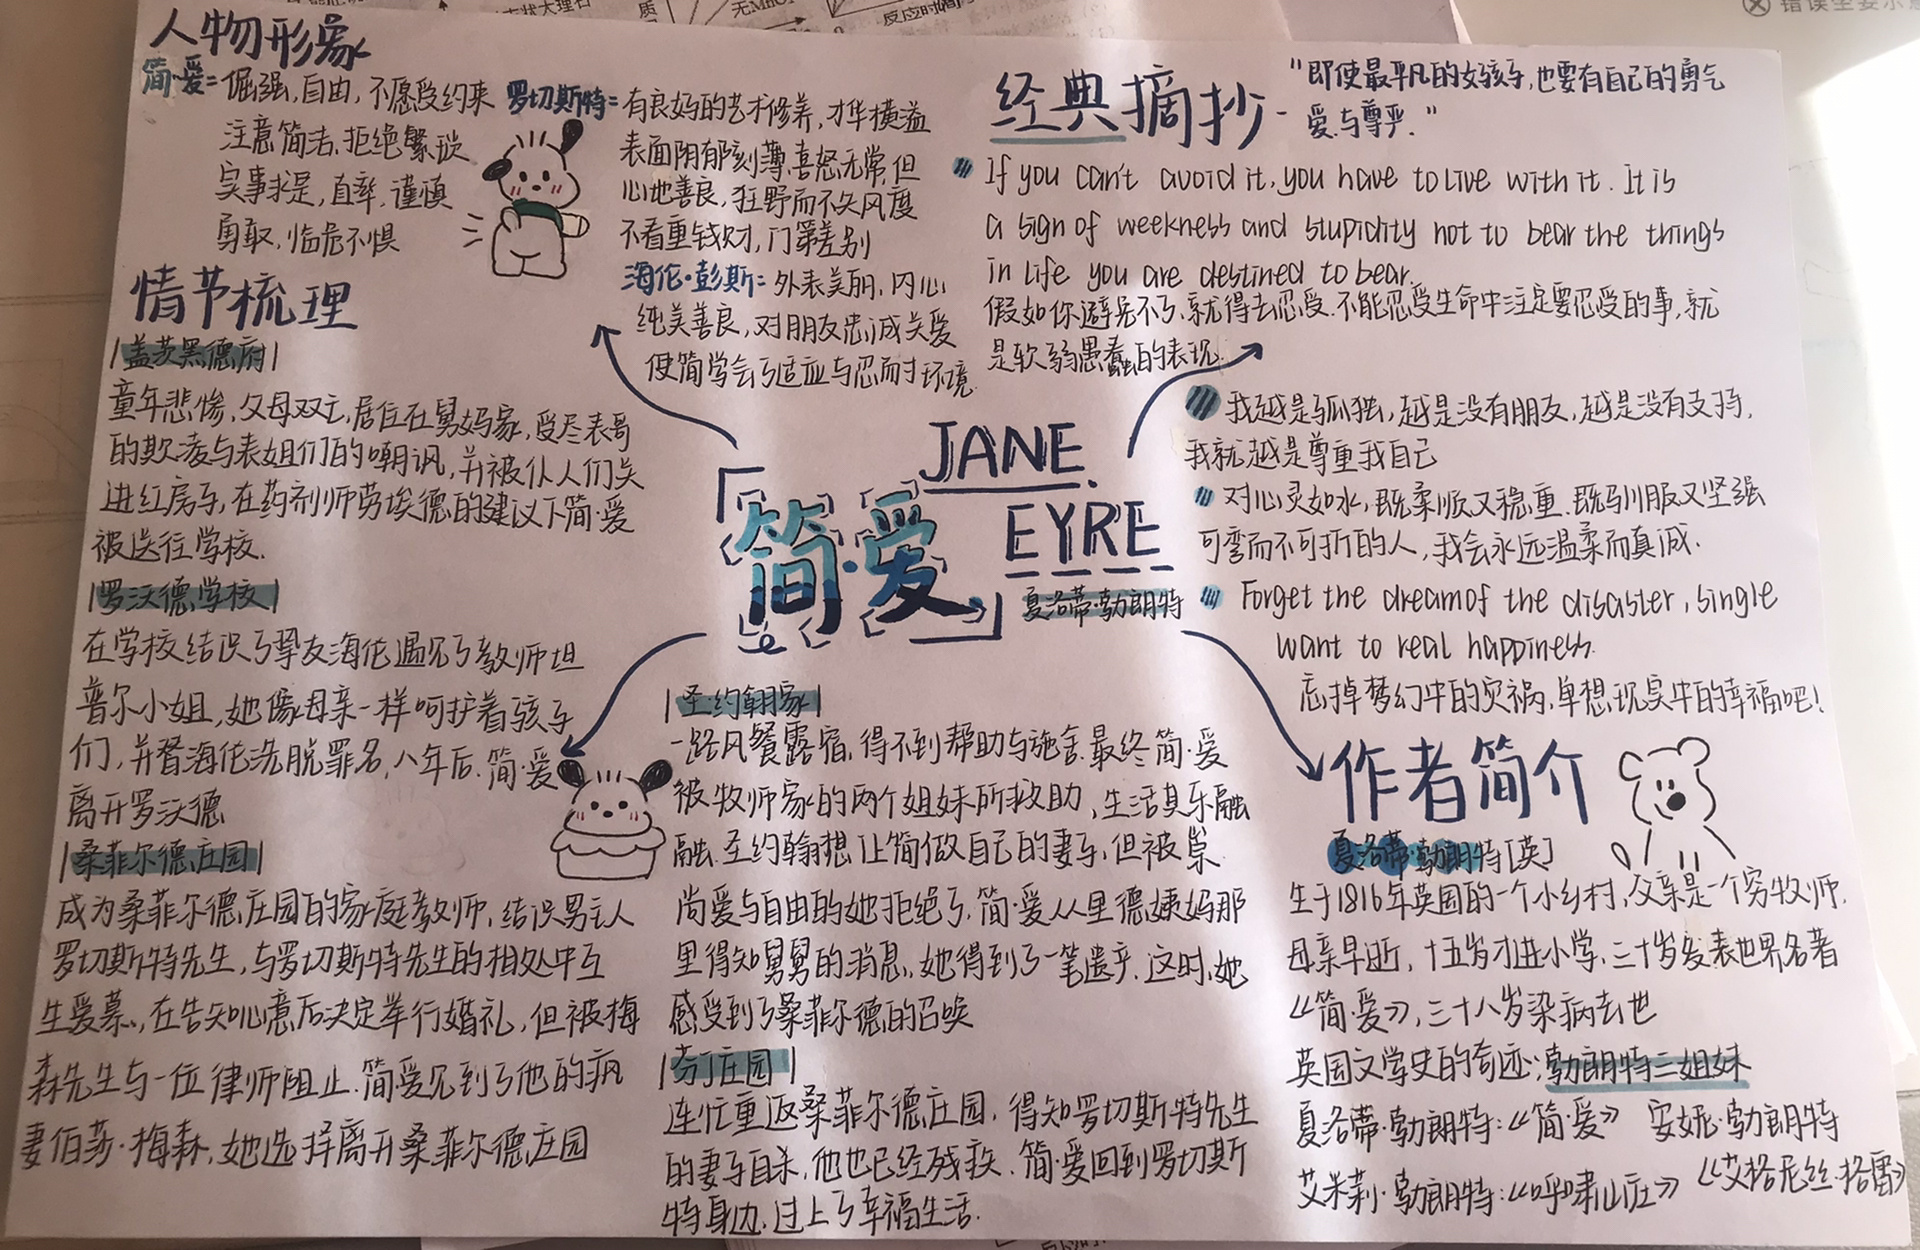 人物形象
简·爱=倔强,自由,不愿受约束
注意简洁,拒绝繁琐
实事求是,直率,谨慎
勇敢,临危不惧
罗切斯特=有良妈的艺术修养,才华横溢
表面阴郁刻薄,喜怒无常,但
心地善良,狂野而不失风度
不看重钱财,门第差别
海伦·彭斯=外表美丽,内心
纯美善良,对朋友忠诚关爱
使简学会了适应与忍耐于环境
情节梳理
盖茨黑德府
童年悲惨,父母双亡,居住在舅妈家,受尽表哥
的欺凌与表姐们的嘲讽,并被仆人们关
进红房子,在药剂师劳埃德的建议下简·爱
被送往学校.
罗沃德学校
在学校结识了挚友海伦遇见了教师坦
普尔小姐,她像母亲一样呵护着孩子
们,并替海伦洗脱罪名,八年后.简·爱
离开罗沃德
桑菲尔德庄园
成为桑菲尔德庄园的家庭教师,结识男主人
罗切斯特先生,与罗切斯特先生的相处中互
生爱慕,在告知心意后决定举行婚礼,但被梅
森先生与一位律师阻止.简爱见到了他的疯
妻伯莎·梅森,她选择离开桑菲尔德庄园
JANE
EYRE
简·爱
夏洛蒂·勃朗特
圣·约翰家
一路风餐露宿,得不到帮助与施舍.最终简·爱
被牧师家的两个姐妹所救助,生活其乐融
融.圣约翰想让简做自己的妻子,但被崇
尚爱与自由的她拒绝了.简·爱从里德姨妈那
里得知舅舅的消息,她得到了一笔遗产.这时,她
感受到了桑菲尔德的召唤
芬丁庄园
连忙重返桑菲尔德庄园,得知罗切斯特先生
的妻子自杀,他也已经残疾.简·爱回到罗切斯
特身边.过上了幸福生活.
经典摘抄-
"即使最平凡的女孩子,也要有自己的勇气
爱与尊严."
If you can't avoid it, you have to live with it. It is
a sign of weekness and stupidity not to bear the things
in life you are destined to bear.
假如你避免不了,就得去忍受.不能忍受生命中注定要忍受的事,就
是软弱愚蠢的表现.
我越是孤独,越是没有朋友,越是没有支持,
我就越是尊重我自己
对心灵如水,既柔顺又稳重.既驯服又坚强
可弯而不可折的人,我会永远温柔而真诚.
Forget the dream of the disaster, single
want to real happiness.
忘掉梦幻中的灾祸,单想现实中的幸福吧!
作者简介
夏洛蒂·勃朗特[英]
生于1816年英国的一个小乡村,父亲是一个穷牧师.
母亲早逝,十五岁才进小学.三十岁发表世界名著
《简·爱》,三十八岁染病去世
英国文学史的奇迹:勃朗特三姐妹
夏洛蒂·勃朗特:《简·爱》 安妮·勃朗特
艾米莉·勃朗特:《呼啸山庄》 《艾格尼丝·格雷》